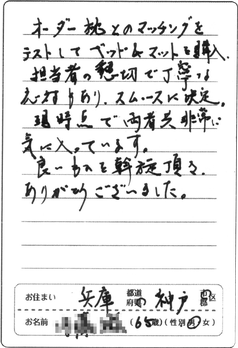 オーダー枕とのマッチングを
テストしてベッド&マットを購入。
担当者の親切で丁寧な
応対もあり、スムースに決定。
現時点で両者共非常に
気に入っています。
良いものを斡旋頂き
ありがとうございました。
お住まい 兵庫 都道府県 神戸 市区
お名前 (65歳) (性別 男 女)